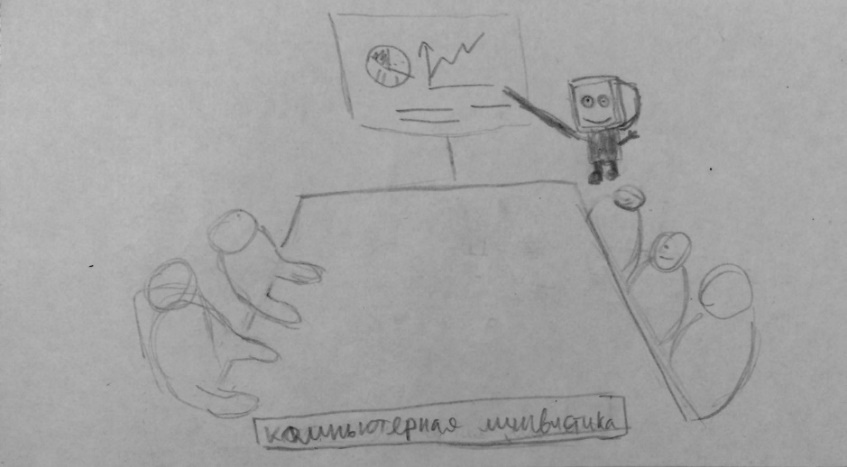 компьютерная лингвистика